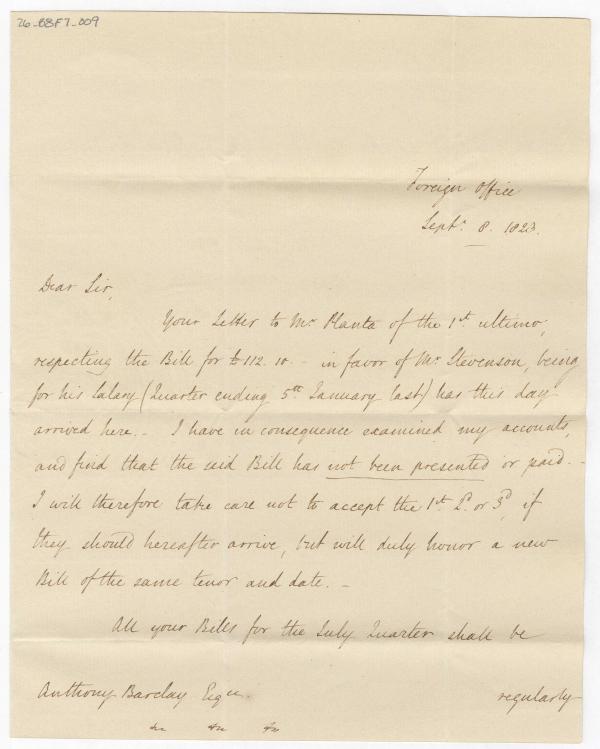 76-88F7-009
Foreign Office
Septr. 8. 1823.
Dear Sir,
Your Letter to Mr Planta of the 1st. ultimo,
respecting the Bill for £112.10. - in favor of Mr Stevenson, being
for his Salary (Quarter ending 5th January last) has this day
arrived here. - I have in consequence examined my accounts,
and find that the said Bill has not been presented or paid. -
I will therefore take care not to accept the 1st. 2d. or 3d, if
they should hereafter arrive, but will duly honor a new
Bill of the same tenor and date. -
All your Bills for the July Quarter shall be
Anthony Barclay Esqre.
regularly